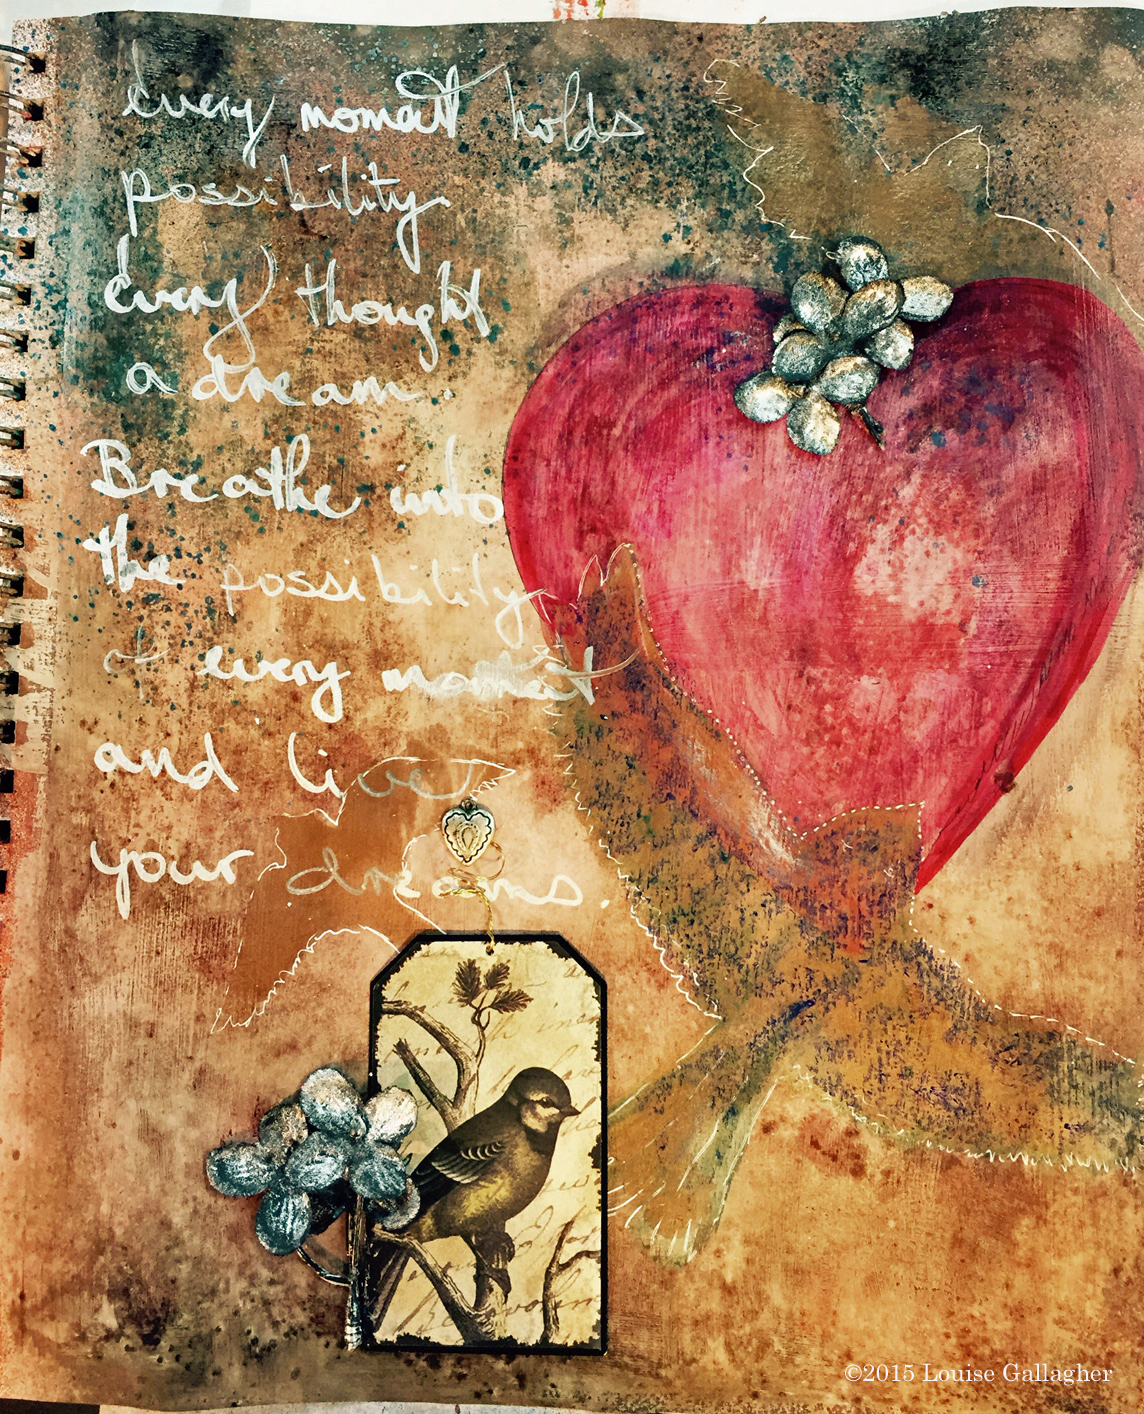 Every moment holds
possibility.
Every thought
a dream.
Breathe into
the possibility
of every moment
and live
your dreams.
©2015 Louise Gallagher